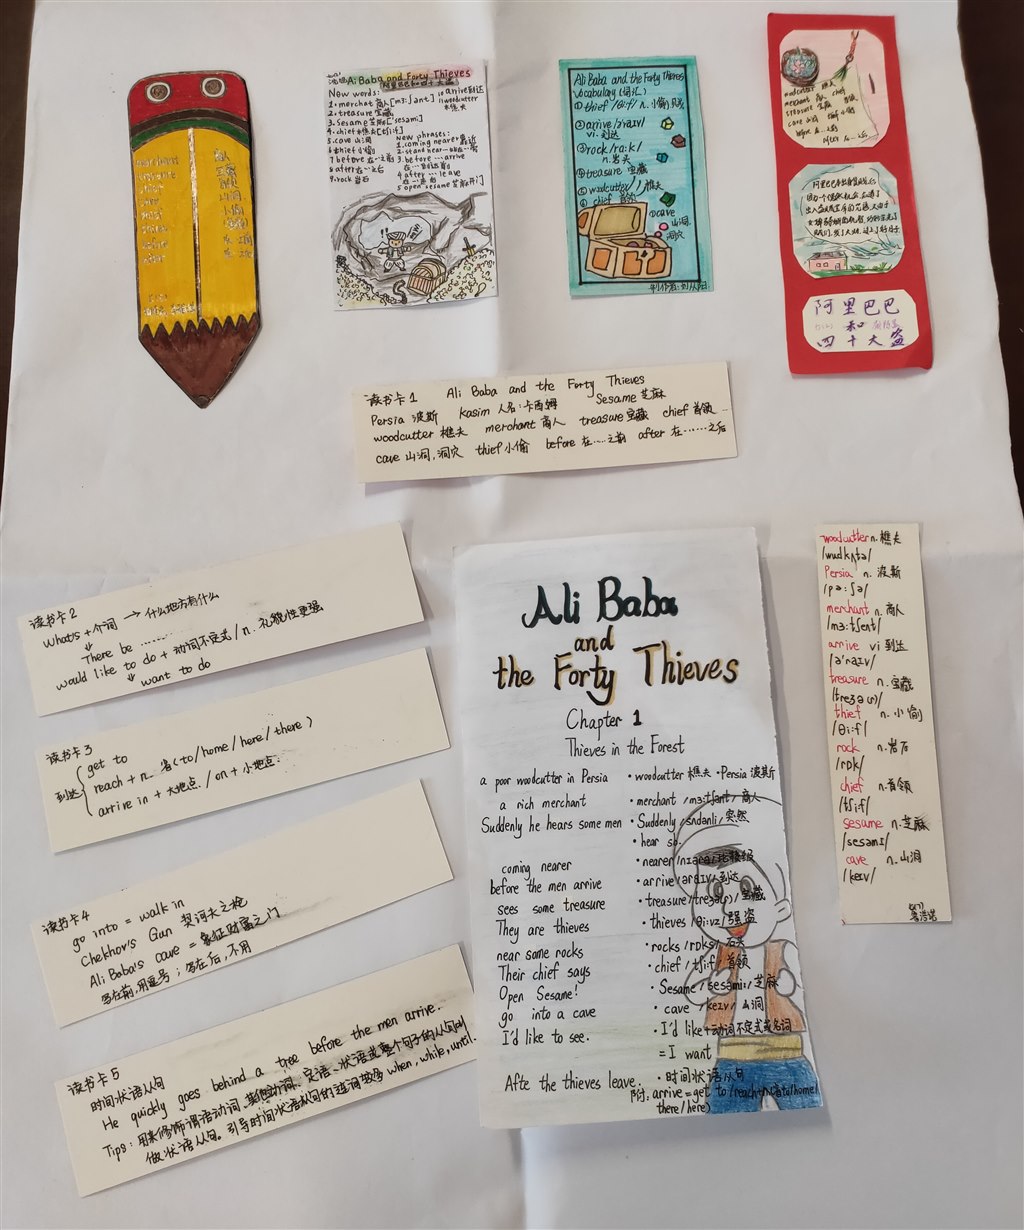 merchant
treasure
chief
商人
宝藏
首领
山洞
小偷
Ali Baba and Forty Thieves
阿里巴巴和四十大盗
New words:
1. merchat 商人[mɜ:ʃənt]
2. treasure 宝藏
3. Sesame 芝麻['sesəmi]
4. chief 首领[tʃi:f]
5. cave 山洞
6. thief 小偷
7. before 在…之前
8. after 在…之后
9. rock 岩石
10 arrive 到达
11 woodcutter
樵夫
New phrases:
1. coming nearer 靠近
2. stand near
3. before … arrive
在…到达前
4. after … leave
5. open sesame 芝麻开门
Ali Baba and the Forty Thieves
Vocabulary (词汇)
①thief /θi:f/ n. 小偷
②arrive /əraɪv/
vi. 到达
③rock /ra:k/
n. 岩头
④treasure 宝藏
⑤woodcutter / /樵夫
⑥ chief 首领
⑦cave
山洞,
洞穴
woodcutter 樵夫
merchant 商人 chief
treasure 宝藏
cave 山洞
before 在…之前
after 在…之后
阿里巴巴
和
四十大盗
读书卡1 Ali Baba and the Forty Thieves
Persia 波斯 kasim 人名:卡西姆 Sesame 芝麻
woodcutter 樵夫 merchant 商人 treasure 宝藏 chief 首领
cave 山洞,洞穴 thief 小偷 before 在……之前 after 在……之后
读书卡2
What's + 介词 → 什么地方有什么
There be ………
would like to do + 动词不定式 / n. 礼貌性更强
want to do
读书卡3
到达
get to
reach + n. 名 (to/home/here/there)
arrive in + 大地点 / on + 小地点.
读书卡4
go into = walk in
Chekhov's Gun 契诃夫之枪
Ali Baba's cave = 象征财富之门
写在前,用逗号;写在后,不用
读书卡5
时间状语从句
He quickly goes behind a tree before the men arrive.
Tips: 用来修饰谓语动词、其他动词、定语、状语或整个句子的从句叫
做状语从句。引导时间状语从句的连词较多 when, while, until.
Ali Baba
and
the Forty Thieves
Chapter 1
Thieves in the Forest
a poor woodcutter in Persia
a rich merchant
Suddenly he hears some men
coming nearer
before the men arrive
sees some treasure
They are thieves
near some rocks
Their chief says
Open Sesame!
go into a cave
I'd like to see.
Afte the thieves leave.
• woodcutter 樵夫 • Persia 波斯
• merchant /mɜ:tʃənt/ 商人
• Suddenly /sʌdənli/ 突然
• hear sb.
• nearer /nɪərə/ 比较级
• arrive /əraɪv/ 到达
• treasure /treʒə(r)/ 宝藏
• thieves /θi:vz/ 强盗
• rocks /rɒks/ 石头
• chief / tʃi:f/ 首领
• Sesame /sesəmi:/ 芝麻
• cave /keɪv/ 山洞
• I'd like + 动词不定式或名词
= I want
• 时间状语从句
附: arrive = get to /reach+n(名to/home/
there/here)
woodcutter n. 樵夫
/wʊdkʌtə/
Persia n. 波斯
/pɜ:ʃə/
merchant n. 商人
/mɜ:tʃənt/
arrive vi 到达
/ə'raɪv/
treasure n. 宝藏
/treʒə(r)/
thief n. 小偷
/θi:f/
rock n. 岩石
/rɒk/
chief n. 首领
/tʃi:f/
sesame n. 芝麻
/sesəmɪ/
cave n. 山洞
/keɪv/